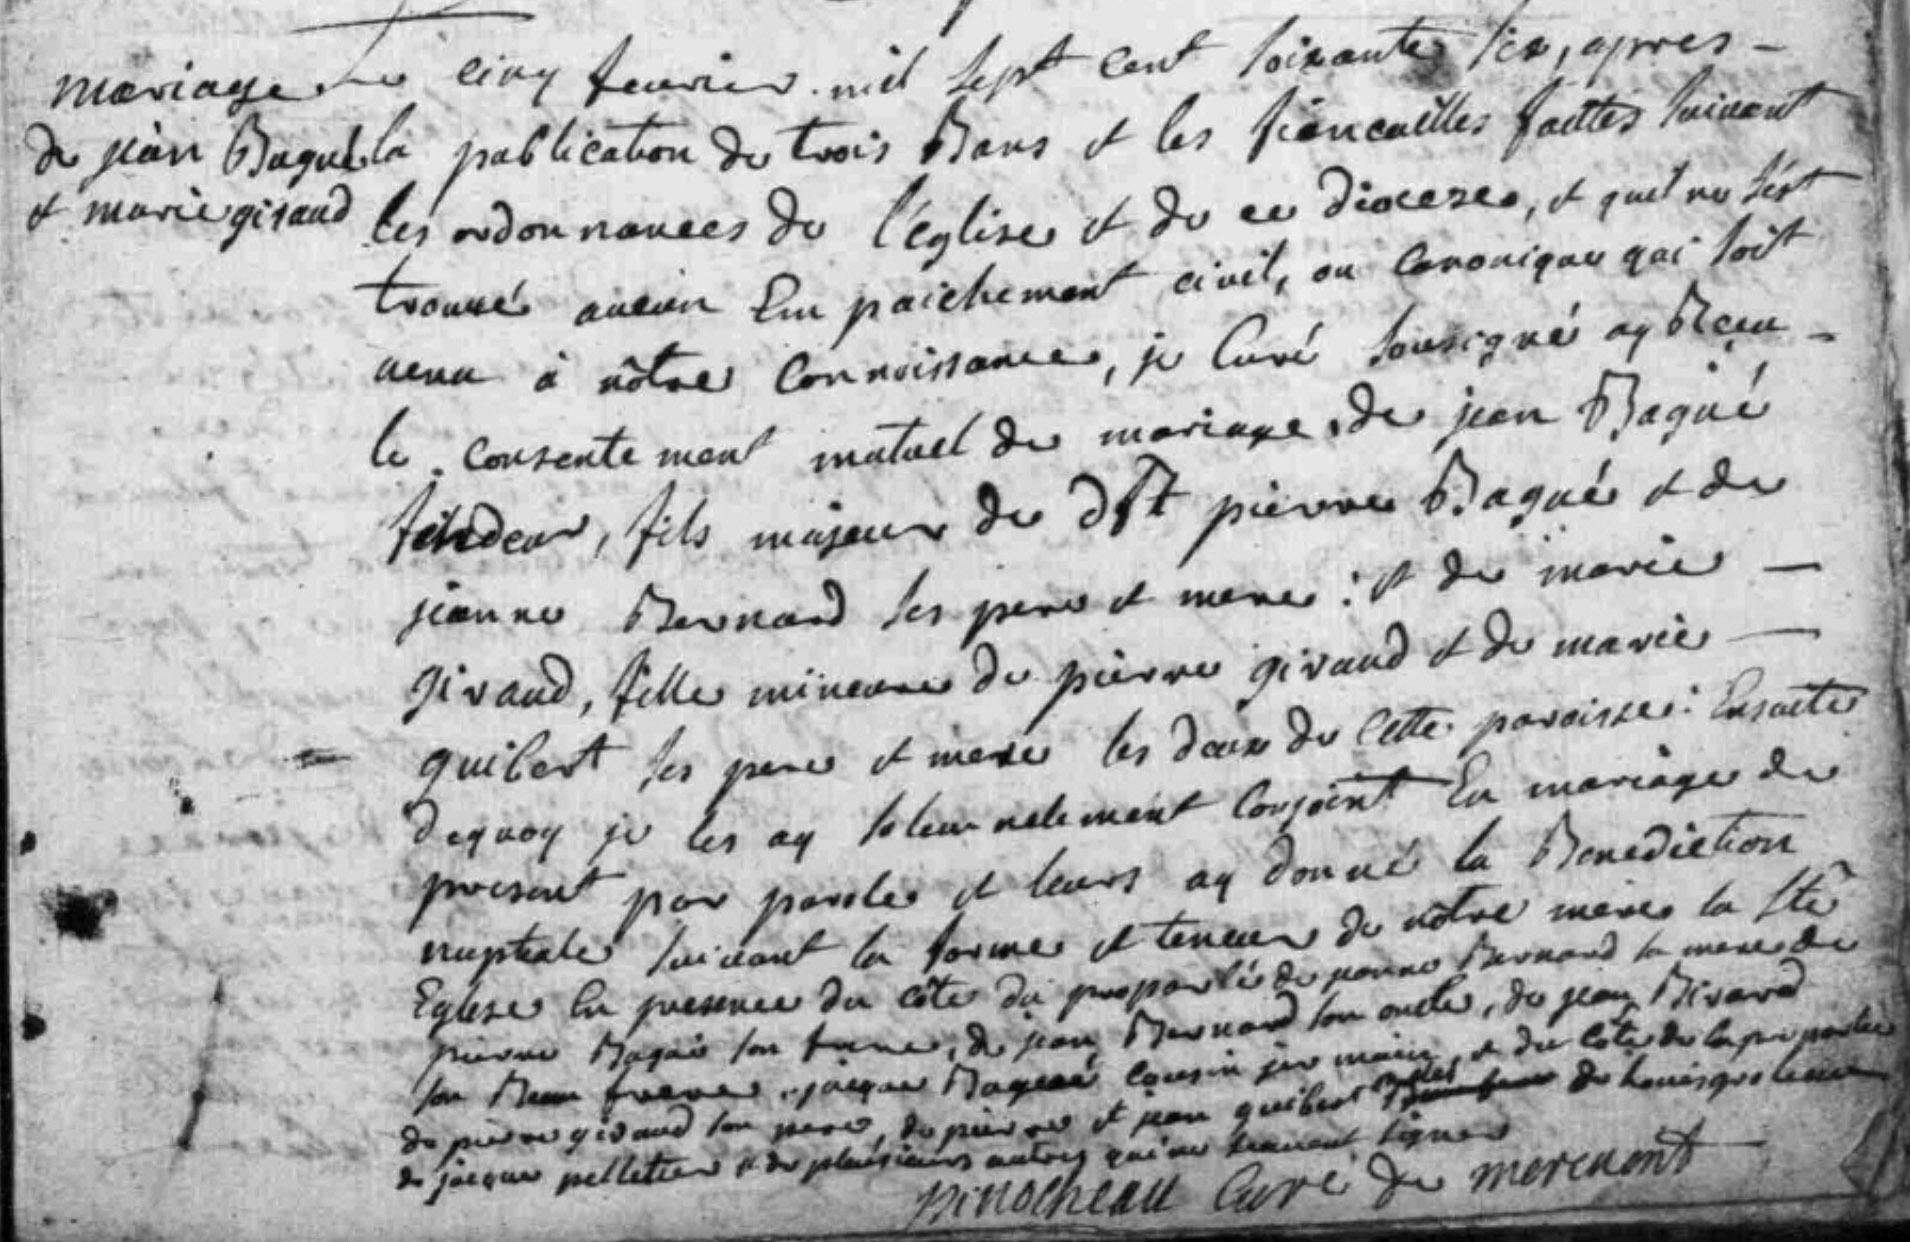 mariage
de jean Bagué
et marie giraud
Le cinq fevrier mil sept cent soixante six, apres
la publication de trois Bans et les fiancailles faittes suivant
les ordonnances de l'église et de ce dioceze, et quil ne s'est
trouvé aucun Em paichement civil, ou Canonique qui soit
venu à nôtre Connoissance, je Curé sousigné ay Reçeu
le consente ment mutuel de mariage de jean Bagué
fendeur, fils majeur de dft pierre Bagué et de
jeanne Bernard ses pere et mere : et de marie
giraud, fille mineure de pierre giraud et de marie
guibert ses pere et mere les deux de Cette paroisse : Ensuitte
dequoy je les ay solemnelement Conjoint En mariage de
present par parole et leurs ay donné la Benediction
nuptiale suivant la forme et teneur de nôtre mere la Ste
Eglise En presence du côté du proparlé de jeanne Bernard sa mere de
pierre Bagué son frere, de jean Bernard son oncle, de jean Birard
son Beau frere, jacque Bagué cousin jermain, et du côté de la proparlée
de pierre giraud son pere, de pierre et jean guibert de Louis
de jacque pelletier et de plusieurs autres qui ne scauent signer
pinocheau Curé de mervent